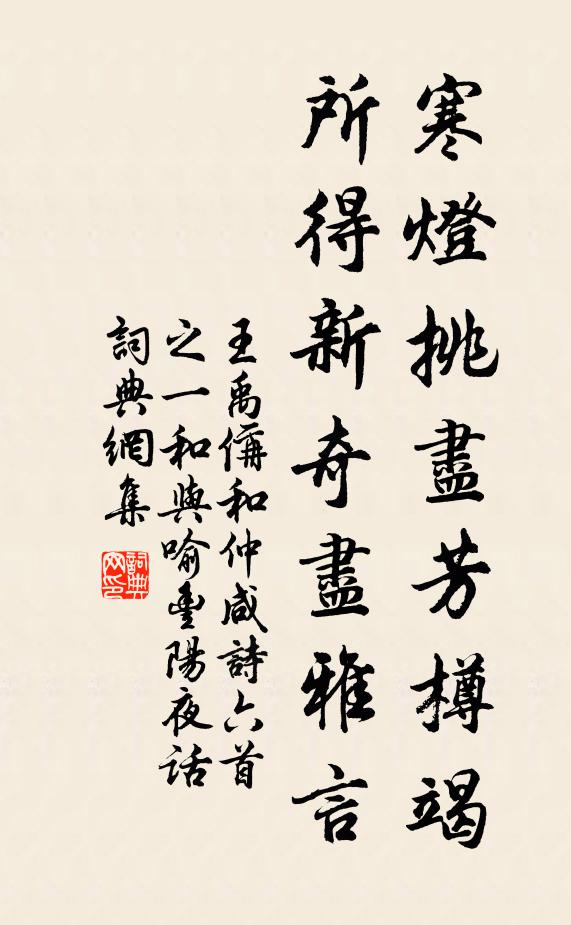 寒燈挑盡芳樽竭
所得新奇盡雅言
王禹偁和仲咸詩六首
之一和與喻豐陽夜话
詞典網集
詞典網印